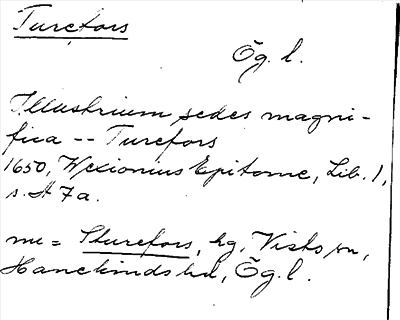 Turefors
Ög. l.
Illustrium sedes magni-
fica -- Turefors
1650, Wexionius Epitome, Lib. 1,
s. A 7a.
nu = Sturefors, hg, Vists sn,
Hanekinds hd, Ög. l.